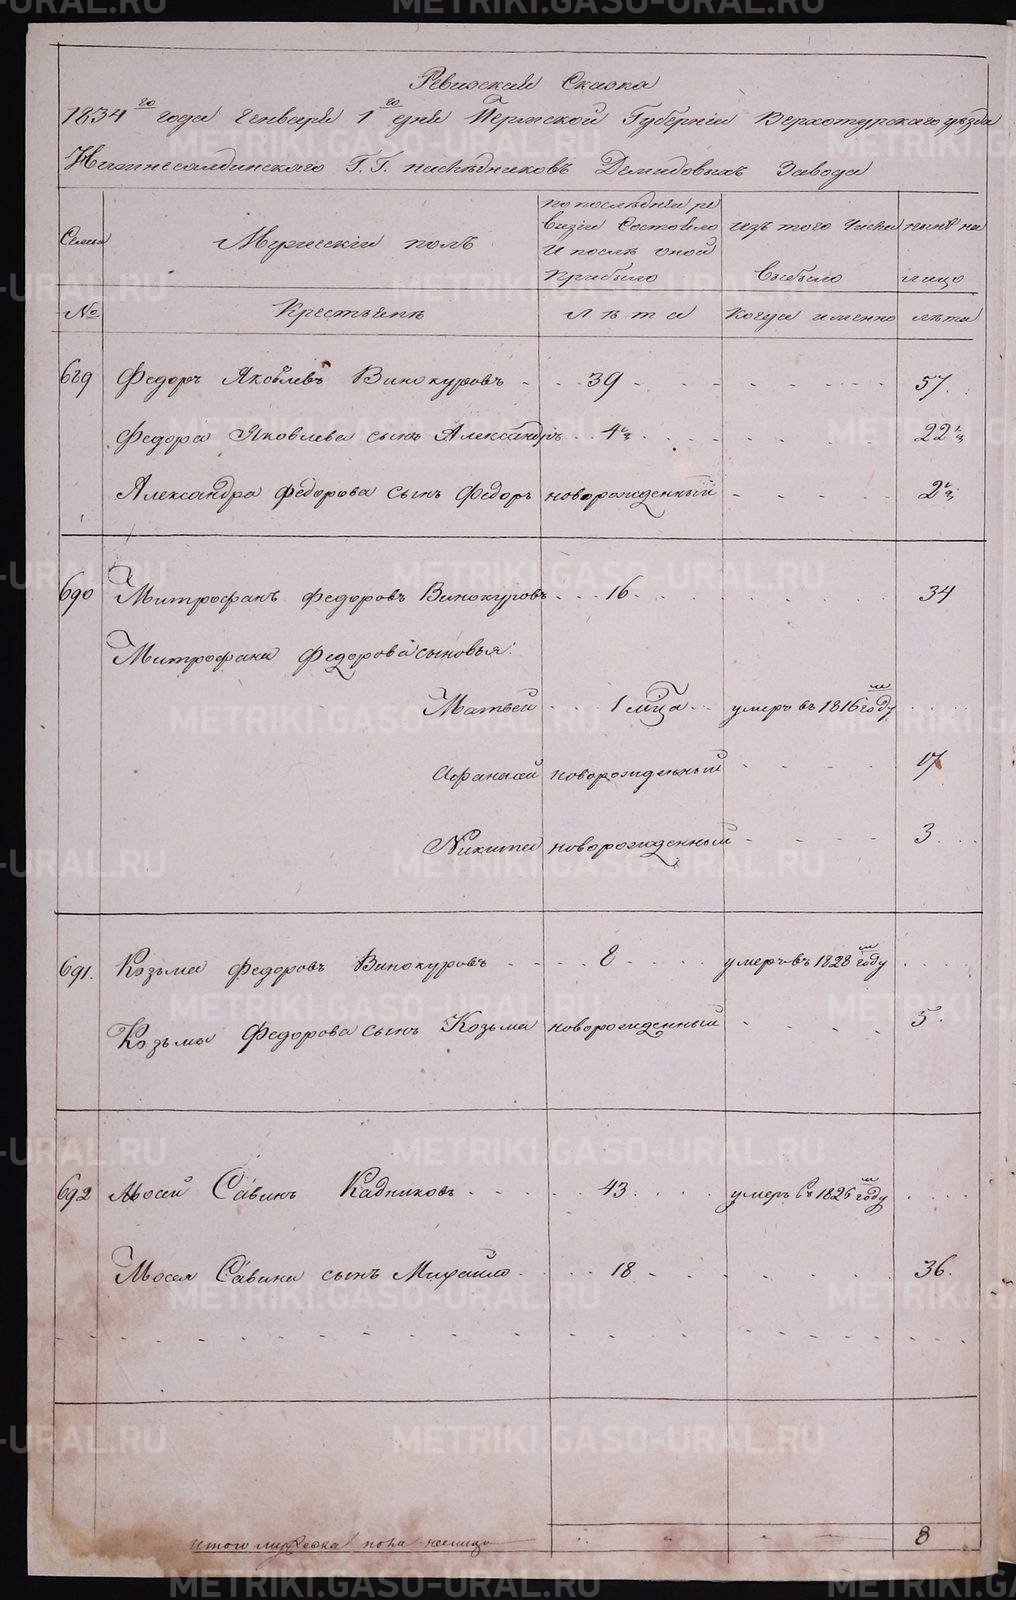 Ревижская Сказка
1834го года Генваря 1го дня Пермской Губернiи Верхотурского уѣзда
Нижнесалдинского Г.Г. наслѣдниковъ Демидовыхъ Завода
Семьи
Мужескiй полъ
по послѣдней ре
визiи Состояло
и послѣ оной
прибыло
изъ того числа
выбыло
нынѣ на
лицо
№
Крестьянъ
Лѣта
Когда именно
лѣта
689 Федоръ Яковлевъ Винокуровъ 39 57.
Федора Яковлева сынъ Александръ 4 22
Александра Федорова сынъ Федоръ новорожденный 2
690 Митрофанъ Федоровъ Винокуровъ 16 34
Митрофана Федорова сыновья:
Матвей 1 мца умеръ въ 1816м году
Афанасей новорожденный 17
Никита новорожденный 3
691. Козьма Федоровъ Винокуровъ 8 умеръ въ 1828м году
Козьмы Федорова сынъ Козьма новорожденный 5.
692 Мосей Савинъ Кадниковъ 43 умеръ въ 1826м году
Мосея Савина сынъ Михайло 18 36.
Итого мужеска пола налицо 8
METRIKI.GASO-URAL.RU